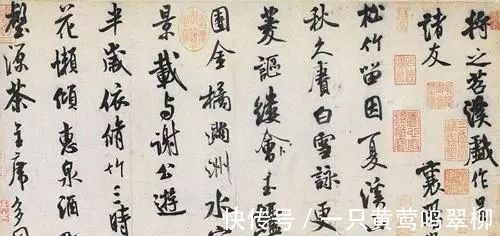 將之苕溪戲作呈
諸友
襄
松竹留因夏溪
秋久賡白雪詠更
菱謳縷會玉鱸
團金橘滿洲水宮
景載與謝公遊
半歲依脩竹三時
花懶傾惠泉酒
壑源茶主席多同
快传号/一只黄莺鸣翠柳